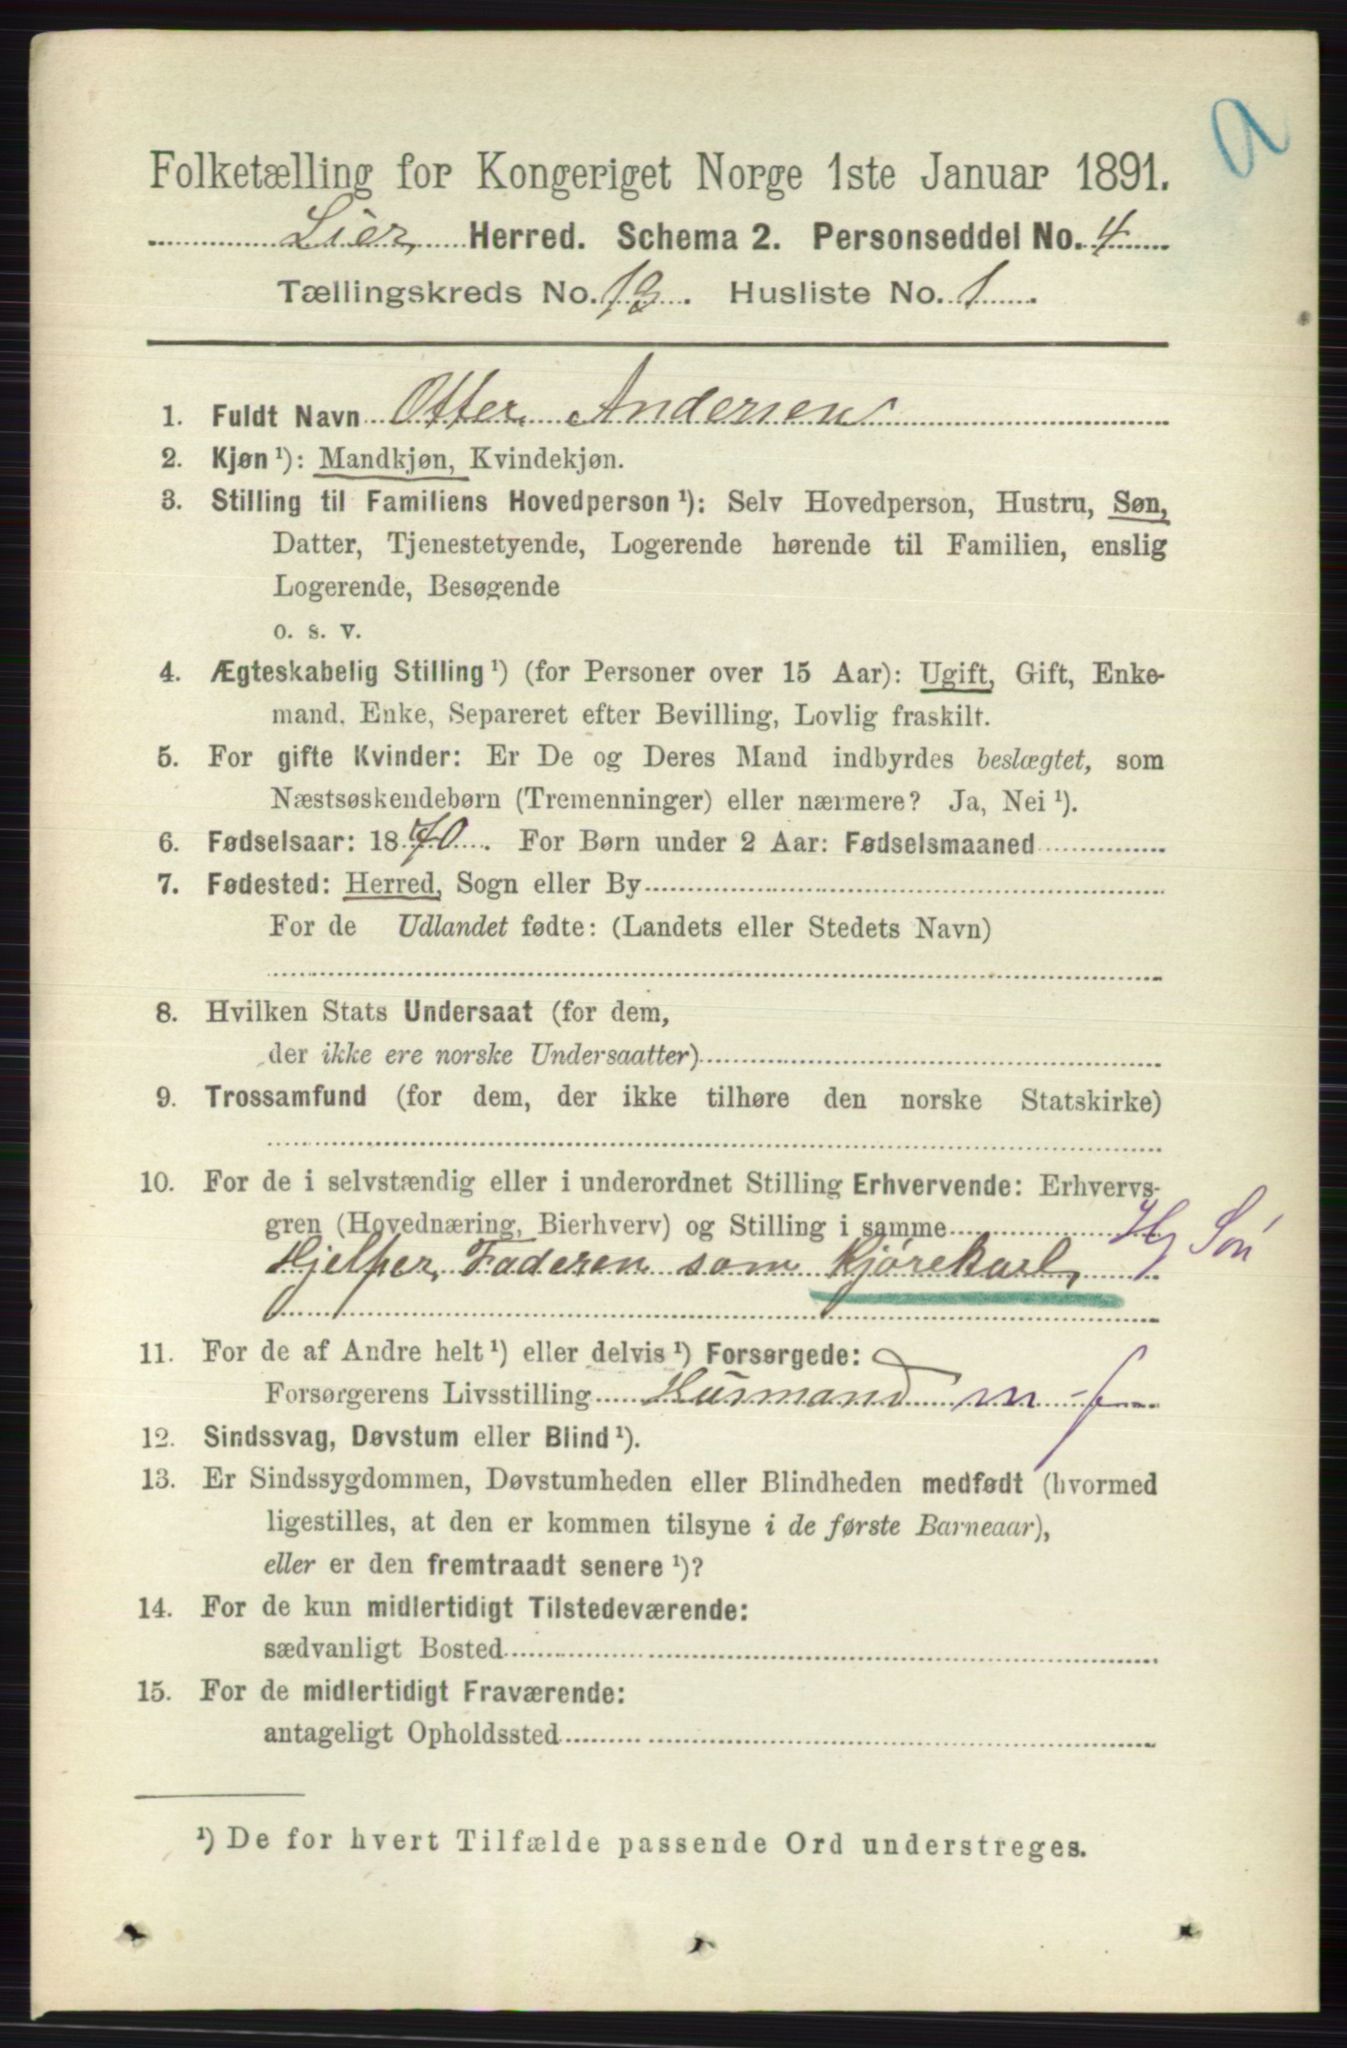 a
Folketælling for Kongeriget Norge 1ste Januar 1891.
Lier Herred. Schema 2. Personseddel No. 4
Tællingskreds No. 13. Husliste No. 1.
1. Fuldt Navn Otter Andersen
2. Kjøn ¹): Mandkjøn, Kvindekjøn.
3. Stilling til Familiens Hovedperson ¹): Selv Hovedperson, Hustru, Søn,
Datter, Tjenestetyende, Logerende hørende til Familien, enslig
Logerende, Besøgende
o. s. v.
4. Ægteskabelig Stilling ¹) (for Personer over 15 Aar): Ugift, Gift, Enke-
mand, Enke, Separeret efter Bevilling, Lovlig fraskilt.
5. For gifte Kvinder: Er De og Deres Mand indbyrdes beslægtet, som
Næstsøskendebørn (Tremenninger) eller nærmere? Ja, Nei ¹).
6. Fødselsaar: 1870. For Børn under 2 Aar: Fødselsmaaned
7. Fødested: Herred, Sogn eller By
For de Udlandet fødte: (Landets eller Stedets Navn)
8. Hvilken Stats Undersaat (for dem,
der ikke ere norske Undersaatter)
9. Trossamfund (for dem, der ikke tilhøre den norske Statskirke)
10. For de i selvstændig eller i underordnet Stilling Erhvervende: Erhvervs-
gren (Hovednæring, Bierhverv) og Stilling i samme Hj Søn
Hjelper Faderen som Kjørekarl
11. For de af Andre helt ¹) eller delvis ¹) Forsørgede:
Forsørgerens Livsstilling Husmand m f
12. Sindssvag, Døvstum eller Blind ¹).
13. Er Sindssygdommen, Døvstumheden eller Blindheden medfødt (hvormed
ligestilles, at den er kommen tilsyne i de første Barneaar),
eller er den fremtraadt senere ¹)?
14. For de kun midlertidigt Tilstedeværende:
sædvanligt Bosted
15. For de midlertidigt Fraværende:
antageligt Opholdssted
¹) De for hvert Tilfælde passende Ord understreges.